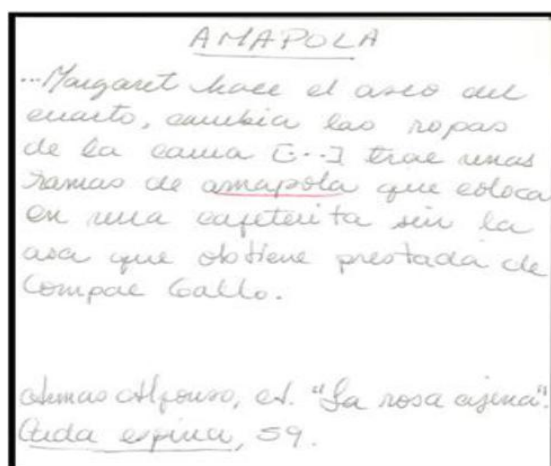 AMAPOLA
...Margaret hace el aseo del
cuarto, cambia las ropas
de la cama [...] trae unas
ramas de amapola que coloca
en una cafeterita sin la
asa que obtiene prestada de
Compae Gallo.
Armas Alfonzo, A. "La rosa ajena".
Cada espina, 59.